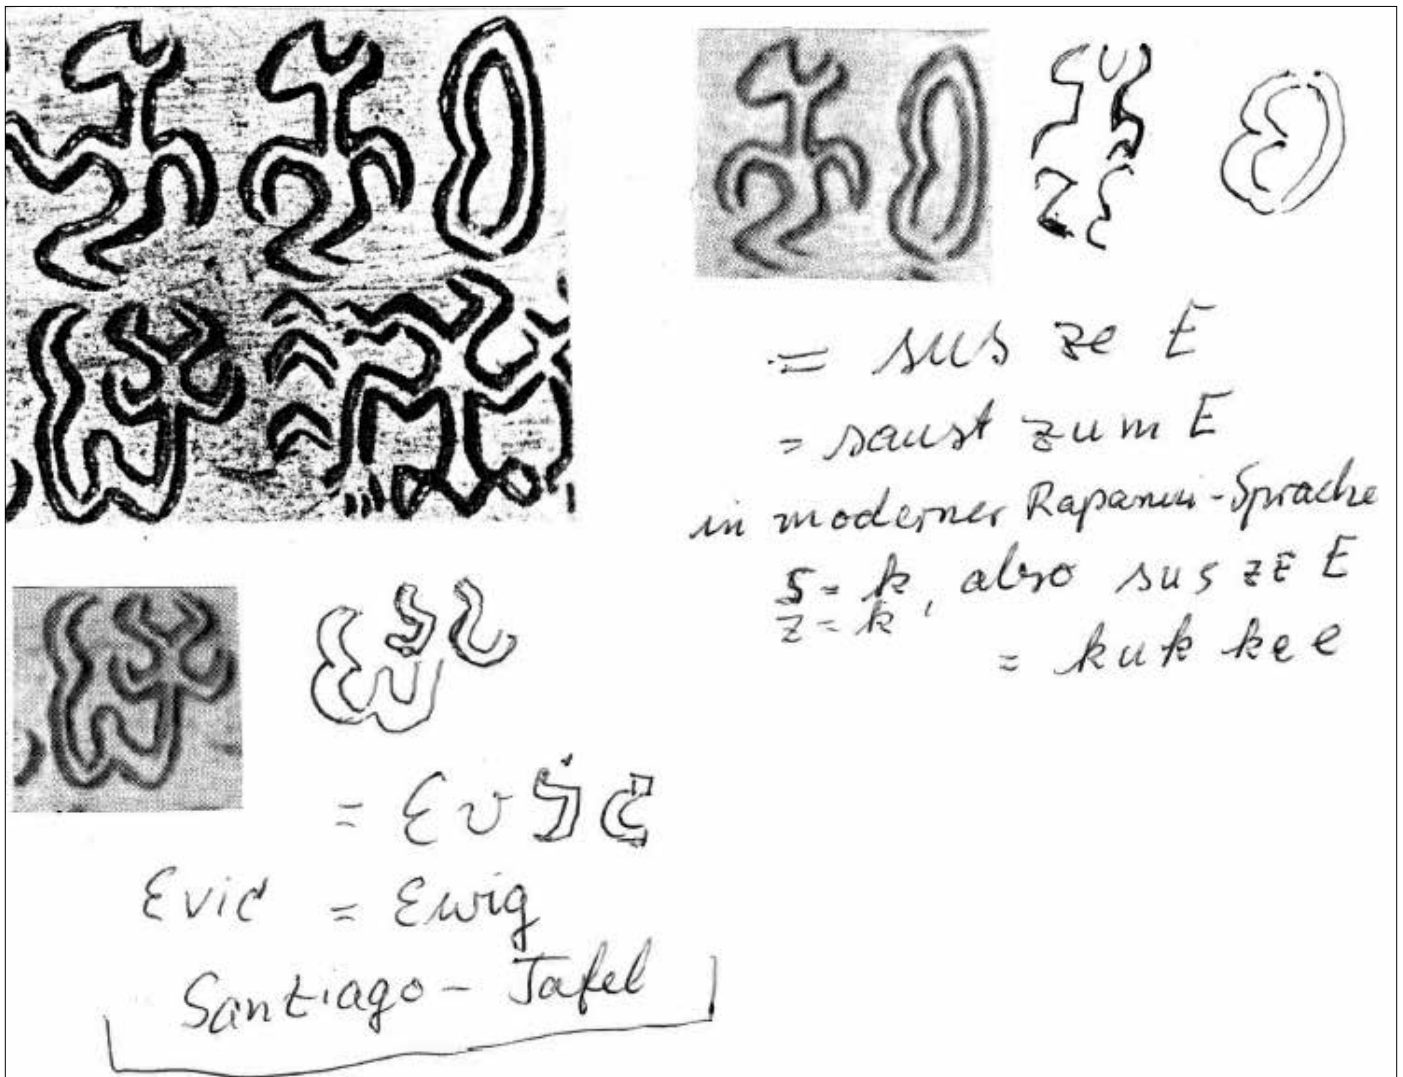 = sus ze E
= saust zum E
in moderner Rapanui-Sprache
S = k, also sus ze E
z = k
= kuk kee
= Ev
Evic = Ewig
Santiago - Tafel